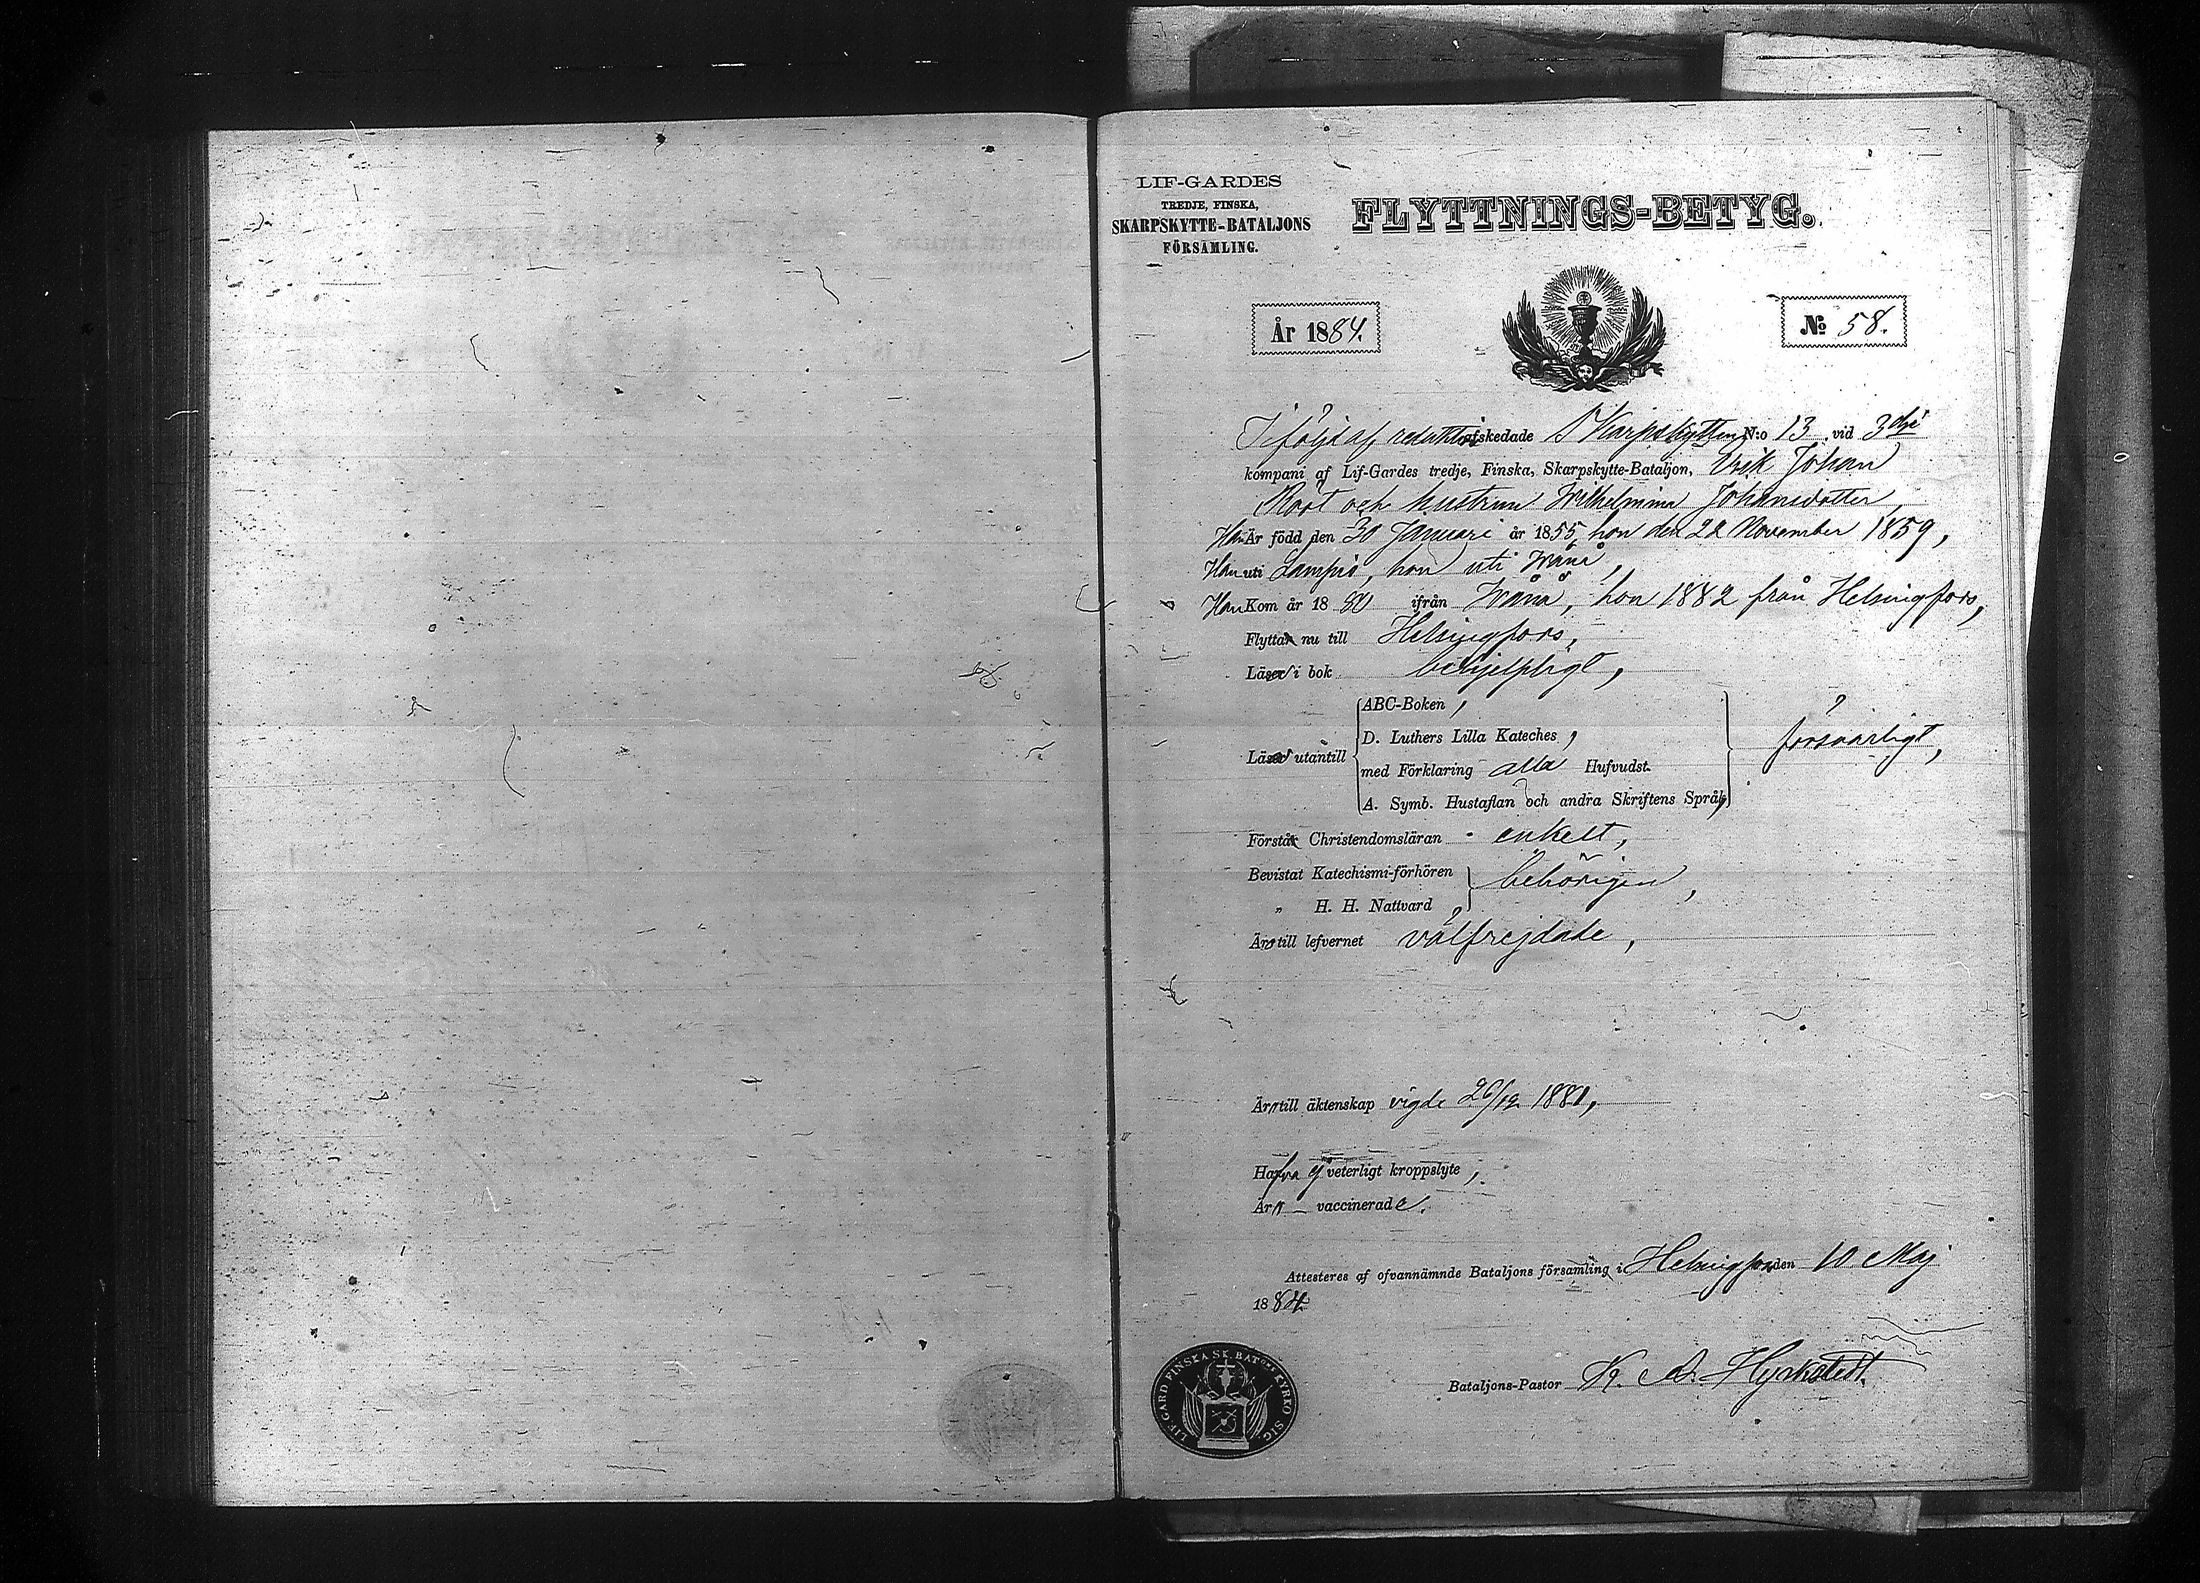 LIF-GARDES
TREDJE, FINSKA,
SKARPSKYTTE-BATALJONS
FÖRSAMLING.
FLYTTNINGS-BETYG.
År 1884.
No 58.
I följd af reduktion afskedade Skarpskytten N:o 13 vid 3dje
kompani af Lif-Gardes tredje, Finska, Skarpskytte-Bataljon, Erik Johan
Root och hustrun Wilhelmina Johansdotter,
Han Är född den 30 Januari år 1855, hon den 22 November 1859,
Han uti Lampis, hon uti Wånå,
Han Kom år 1880 ifrån Wånå, hon 1882 från Helsingfors,
Flytta nu till Helsingfors,
Läsa i bok behjelpligt,
Läsa utantill
ABC-Boken,
D. Luthers Lilla Kateches,
med Förklaring alla Hufvudst.
A. Symb. Hustaflan och andra Skriftens Språk,
försvarligt,
Förstå Christendomsläran enkelt,
Bevistat Katechismi-förhören
„ H. H. Nattvard
behörigen,
Äro till lefvernet välfrejdade,
Äro till äktenskap vigde 26/12 1881,
Hafva ej veterligt kroppslyte,
Äro vaccinerade.
Attesteres af ofvannämnde Bataljons församling i Helsingfors den 10 Maj
1884.
Bataljons-Pastor K. A. Hyrkstedt.
LIF. GARD FINSKA SK. BATONS KYRKO SIG.